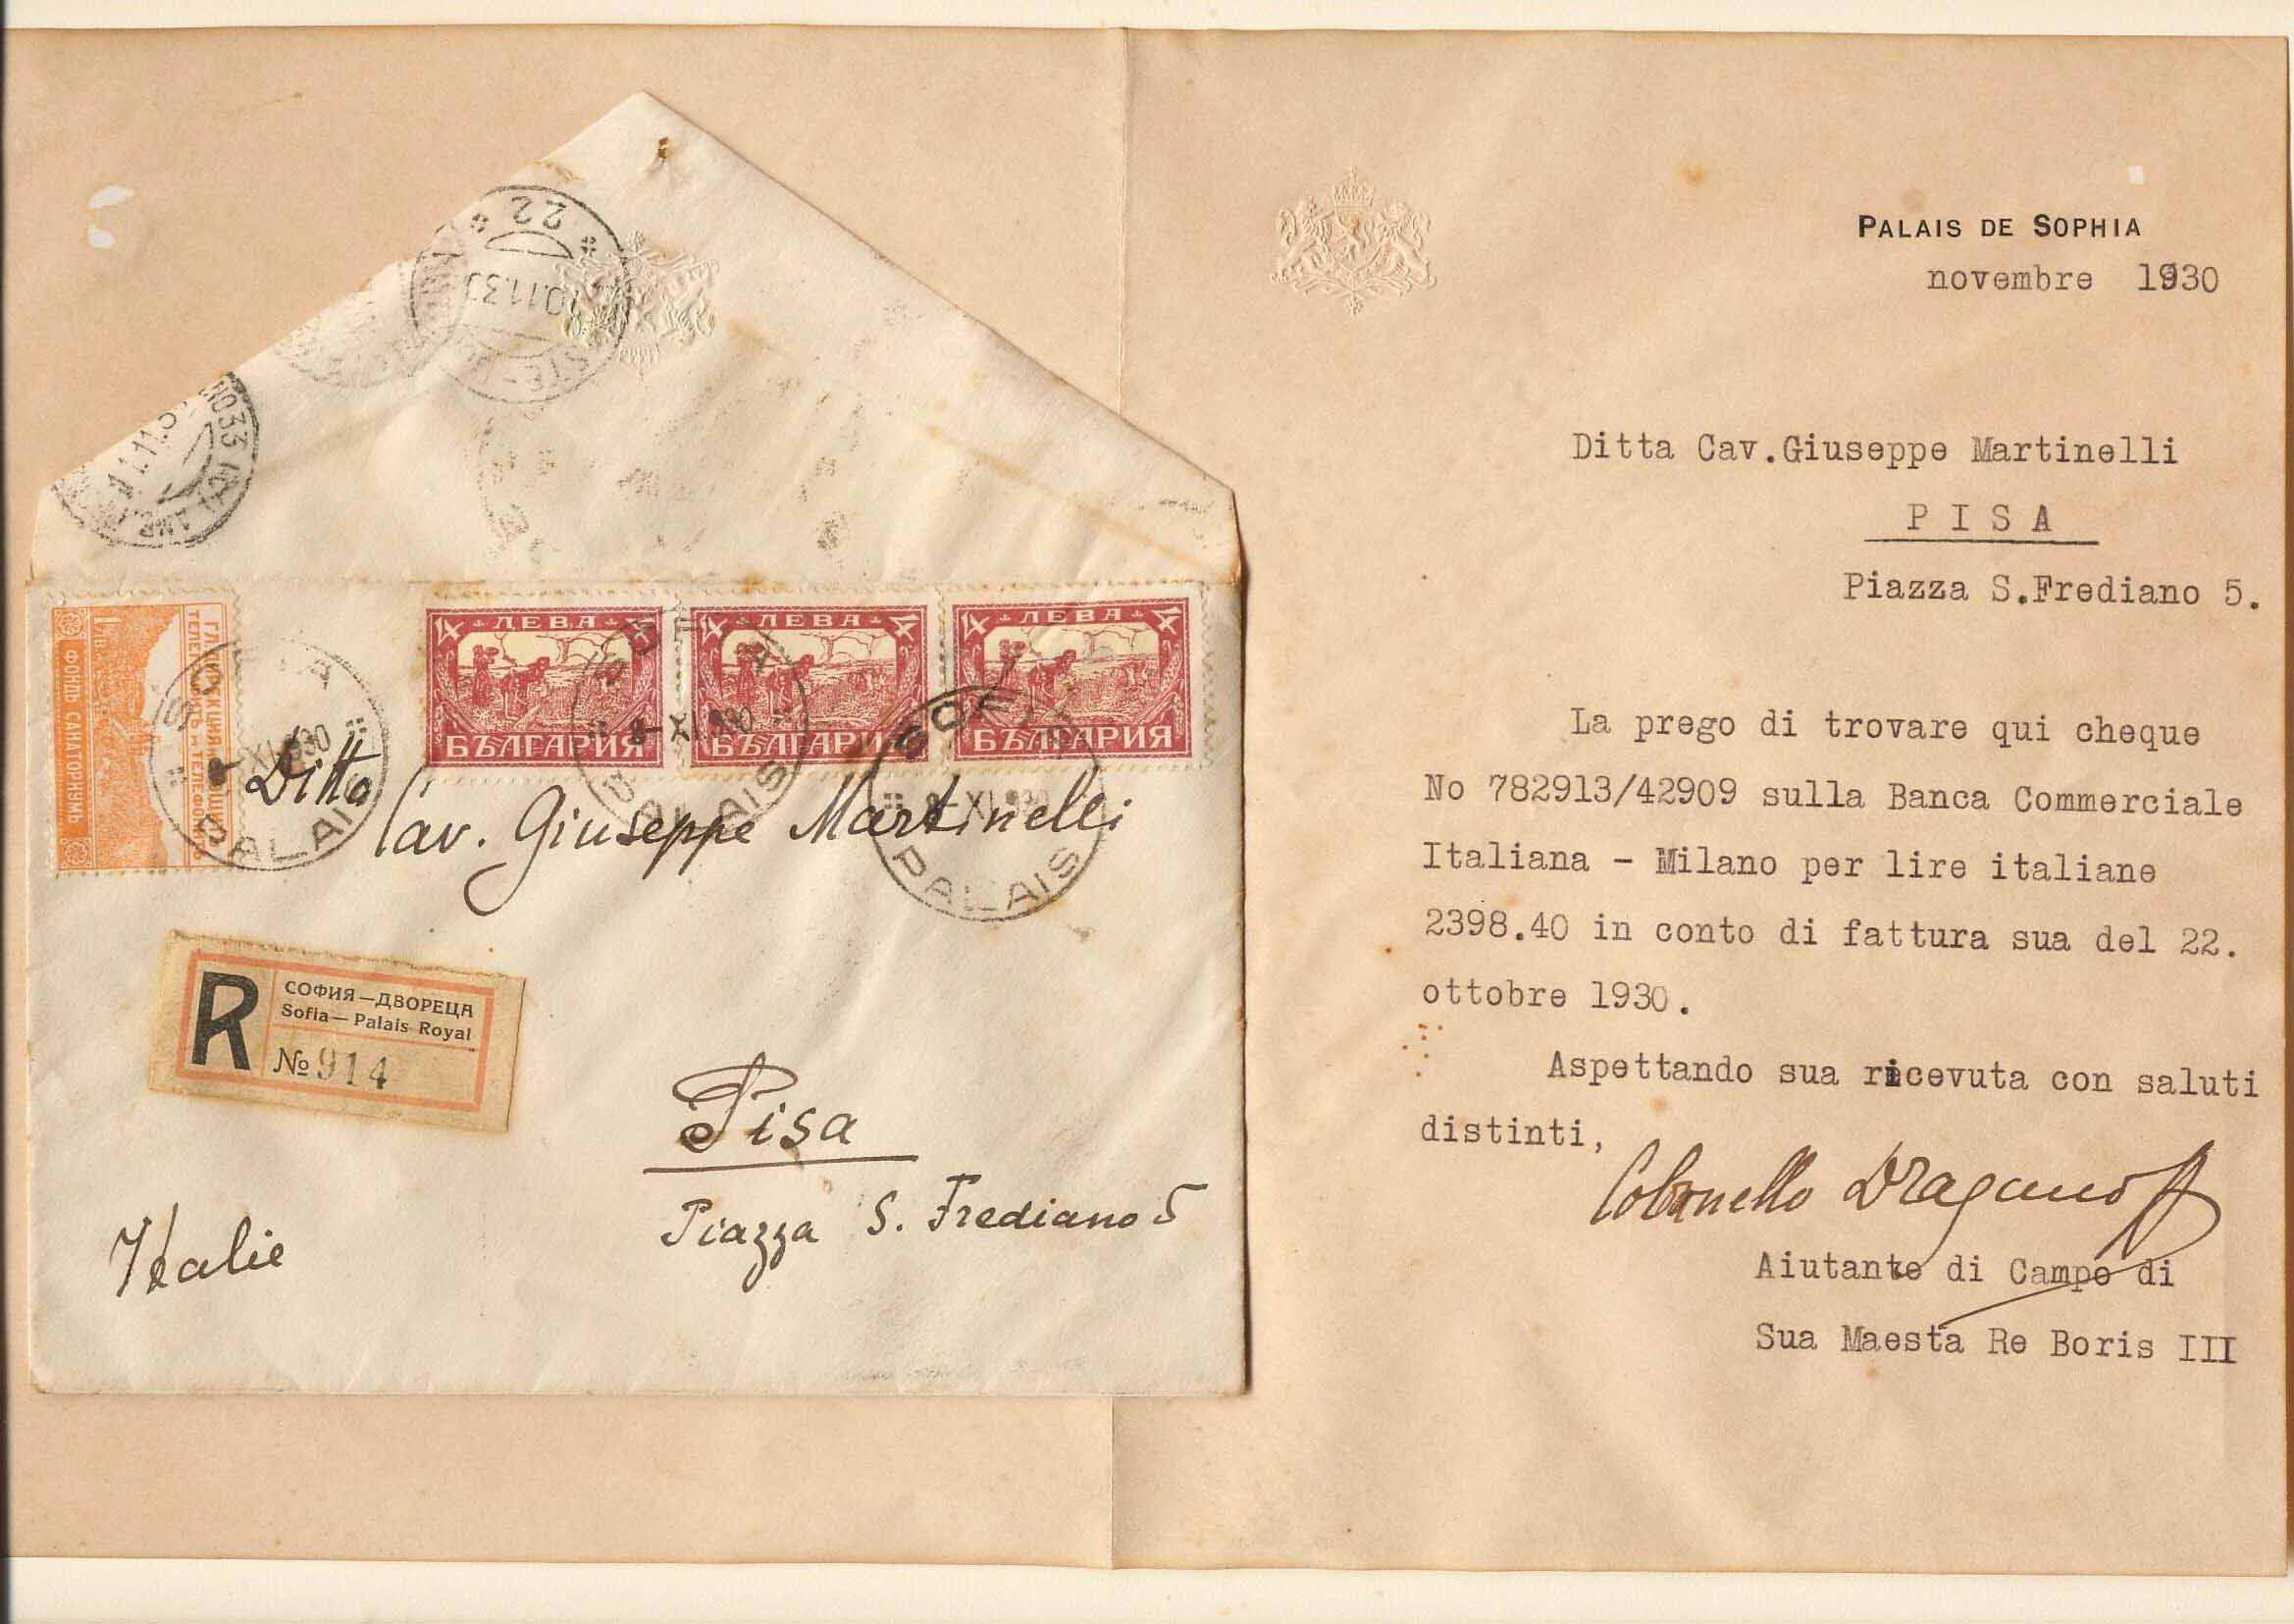 22
10.11.30
11.11.3
ГЛ. ДИРЕКЦИЯ НА ПОЩИТЕ
ТЕЛЕГРАФИТѢ И ТЕЛЕФОНИТѢ
1 ЛВ.
ФОНДЪ САНАТОРИУМЪ
4 ЛЕВА 4
БЪЛГАРИЯ
4 ЛЕВА 4
БЪЛГАРИЯ
4 ЛЕВА 4
БЪЛГАРИЯ
SOFIA
8-XI.930
PALAIS
SOFIA
8-XI.930
PALAIS
SOFIA
8-XI.930
PALAIS
Ditta
Cav. Giuseppe Martinelli
R
СОФИЯ—ДВОРЕЦА
Sofia—Palais Royal
№ 914
Pisa
Piazza S. Frediano 5
Italie
PALAIS DE SOPHIA
novembre 1930
Ditta Cav.Giuseppe Martinelli
PISA
Piazza S.Frediano 5.
La prego di trovare qui cheque
No 782913/42909 sulla Banca Commerciale
Italiana - Milano per lire italiane
2398.40 in conto di fattura sua del 22.
ottobre 1930.
Aspettando sua ricevuta con saluti
distinti,
Colonello Draganoff
Aiutante di Campo di
Sua Maesta Re Boris III